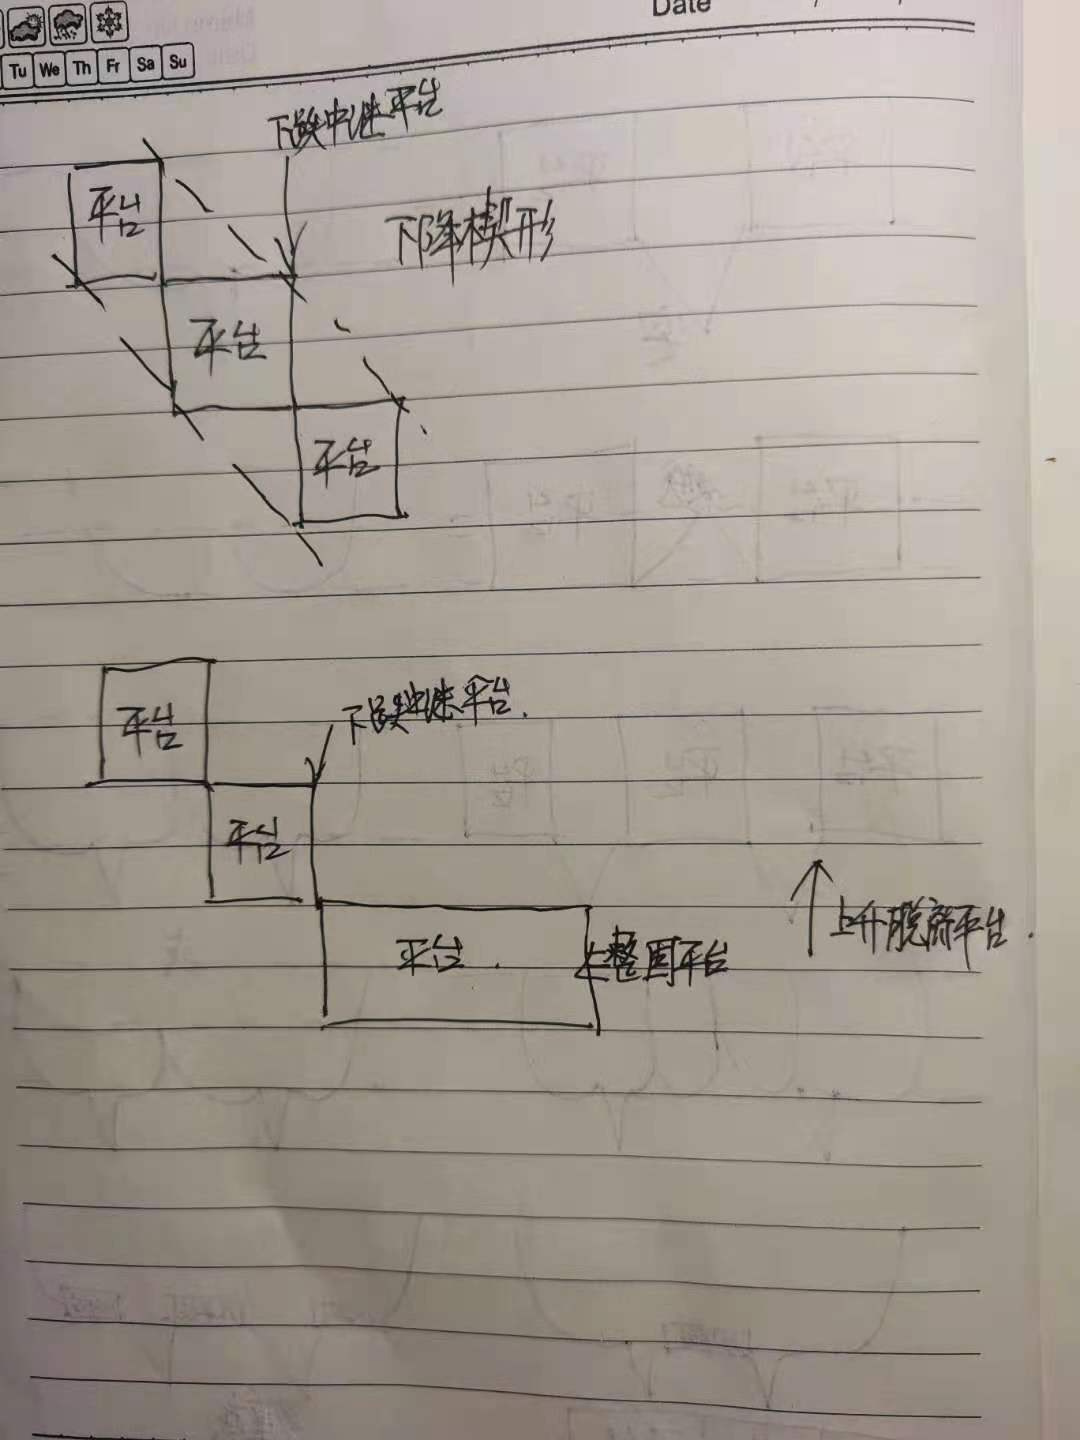 Date
Tu We Th Fr Sa Su
下跌中继平台
平台
下降楔形
平台
平台
平台
下跌中继平台.
平台
平台.
整固平台
上升脱离平台.